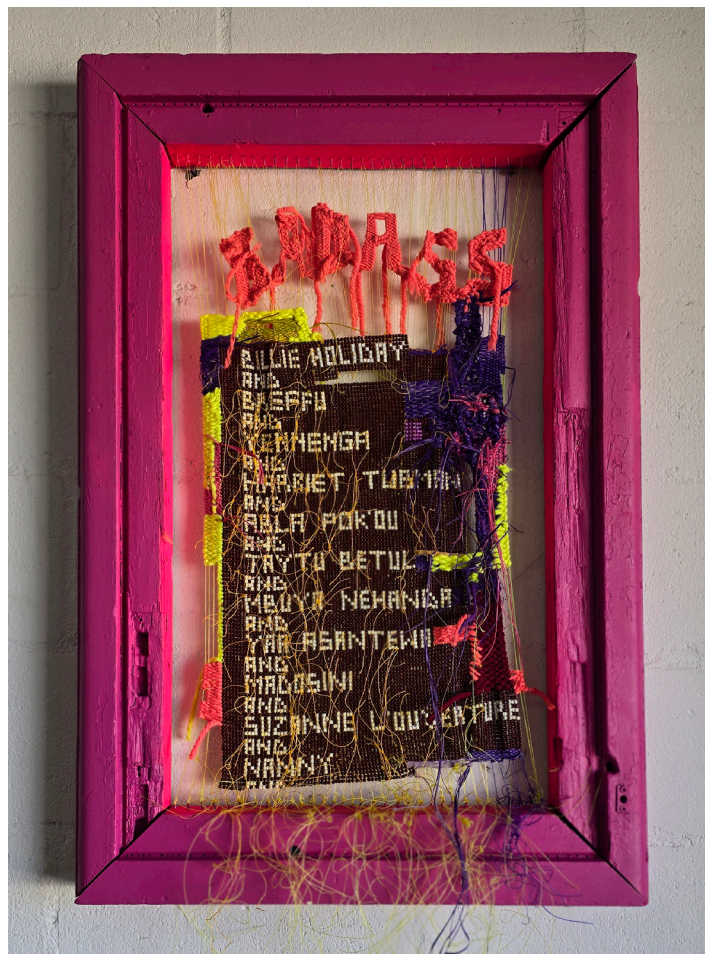 BADASS
BILLIE HOLIDAY
AND
BREFFU
AND
YENNENGA
AND
HARRIET TUBMAN
AND
ABLA POKOU
AND
TAYTU BETUL
AND
MBUYA NEHANDA
AND
YAA ASANTEWA
AND
MAGOSINI
AND
SUZANNE L'OUVERTURE
AND
NANNY
AND